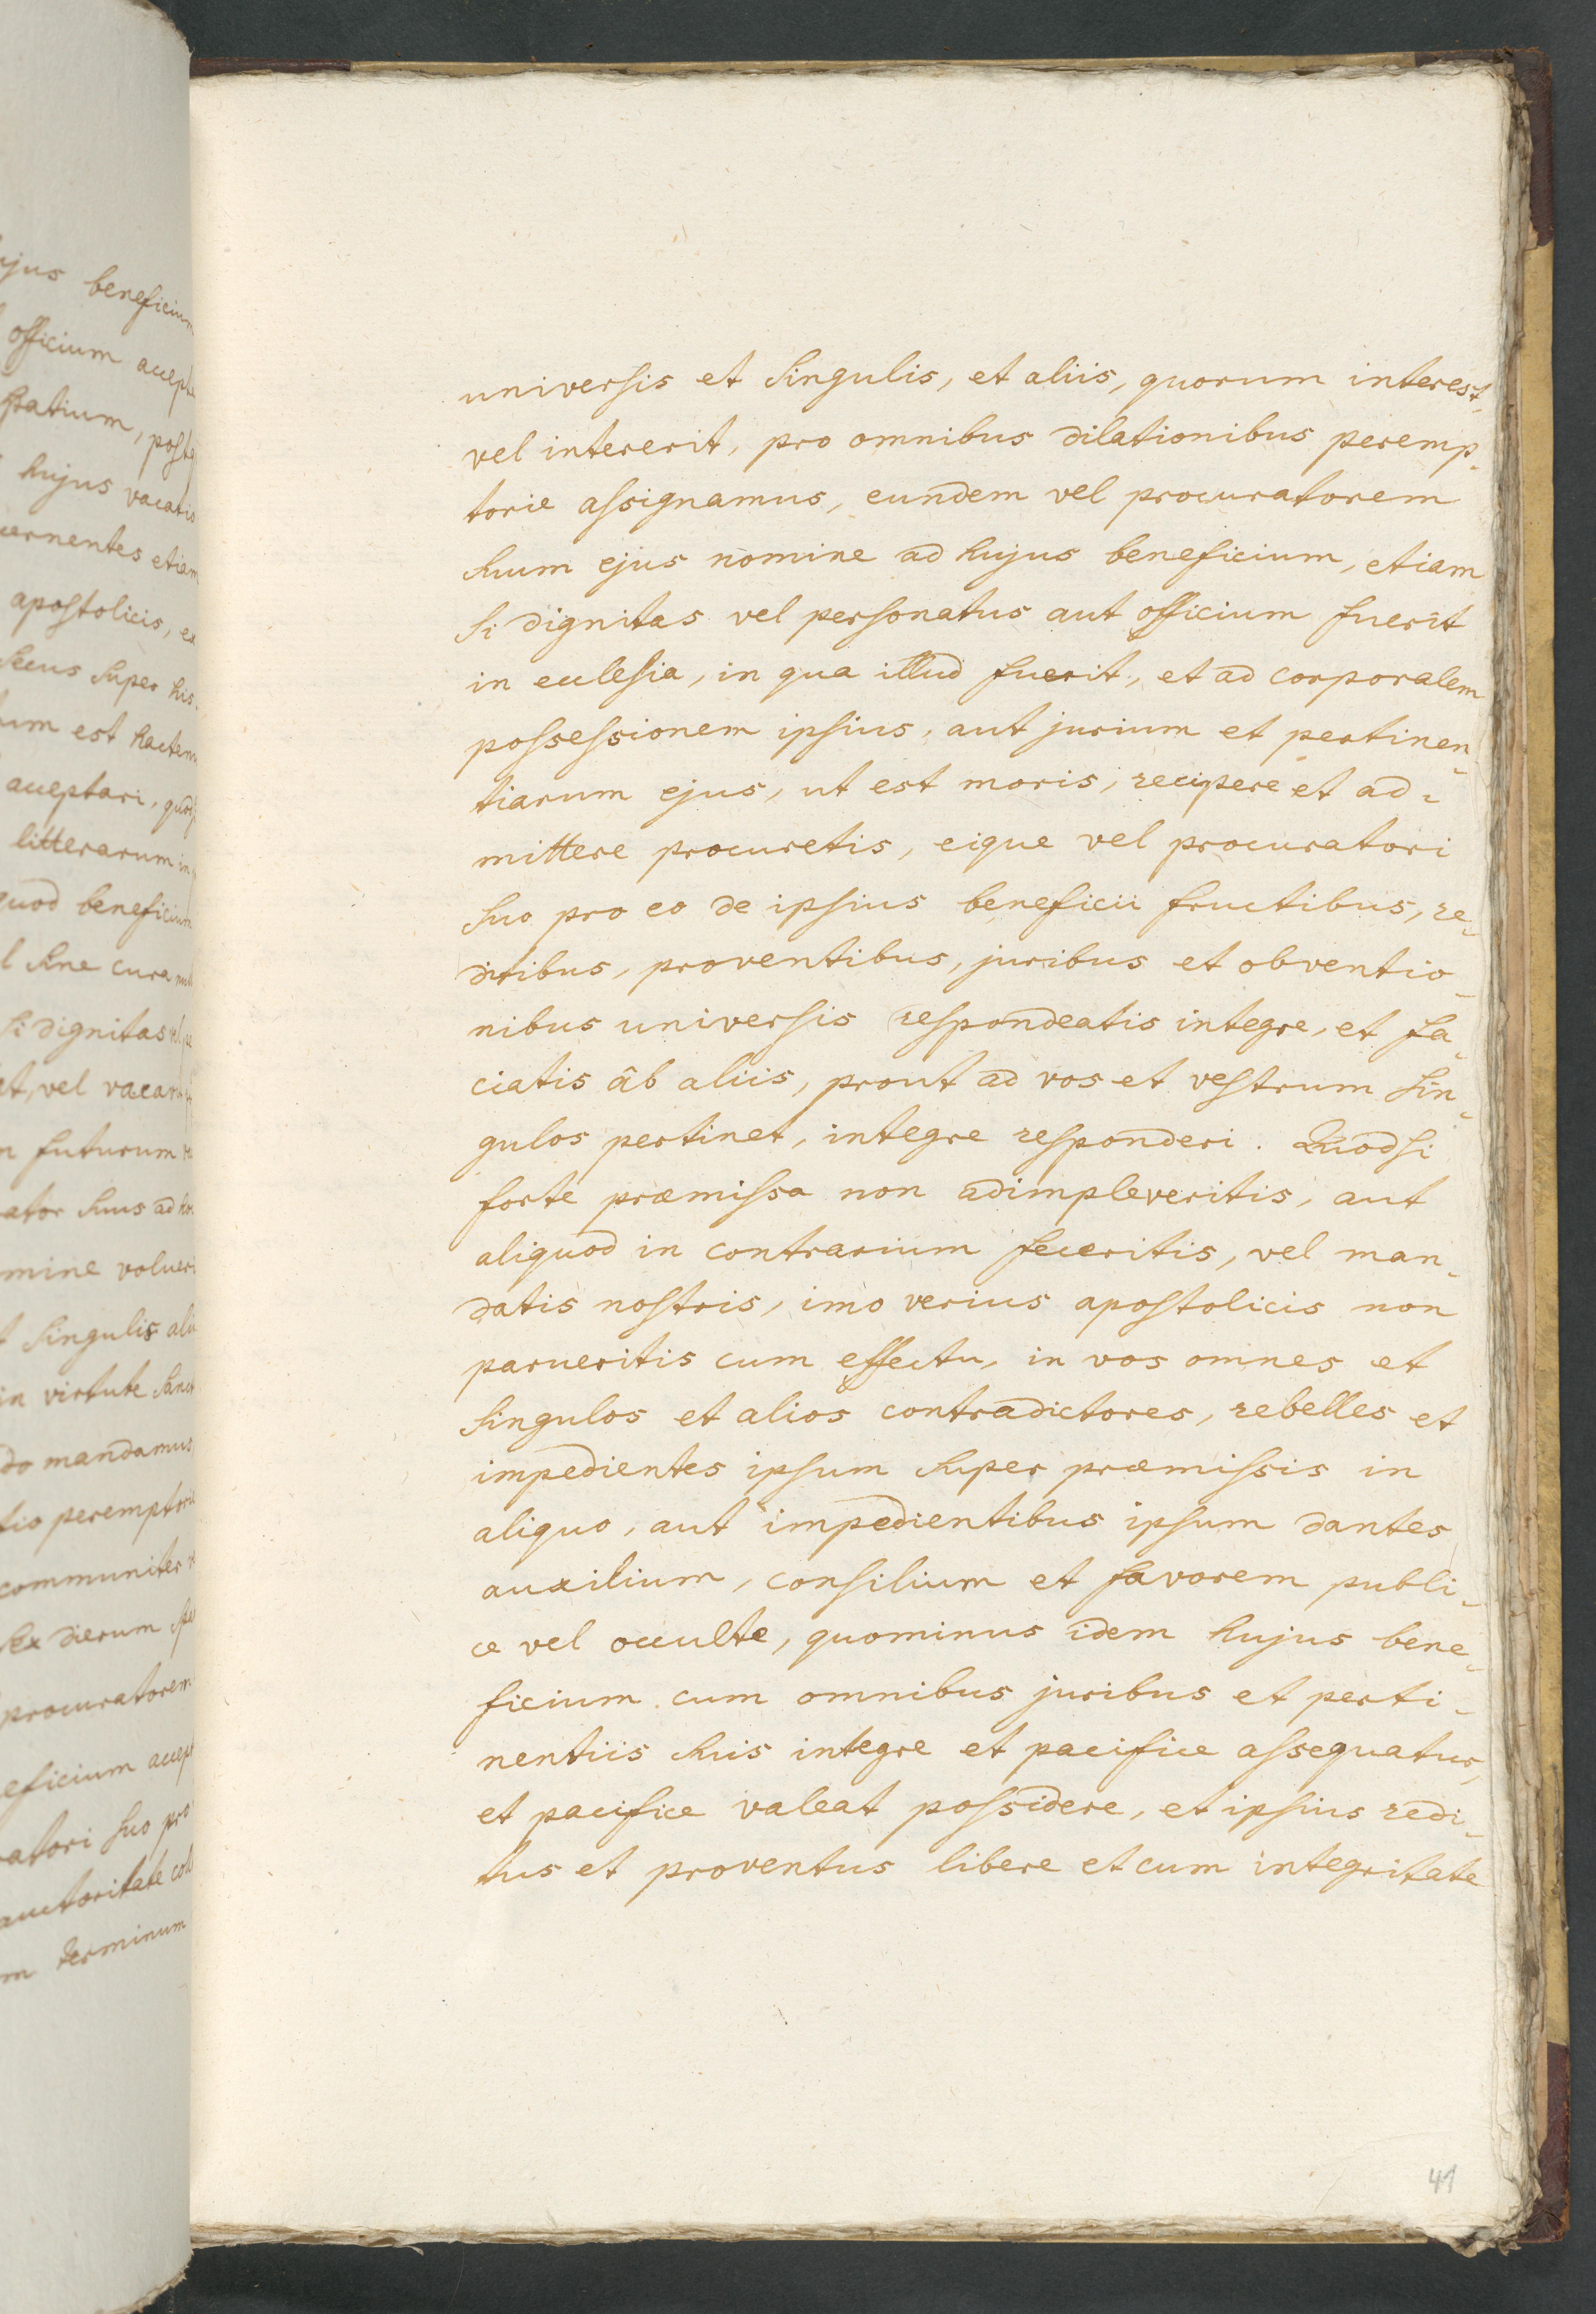 universis et singulis, et aliis, quorum interest,
vel intererit, pro omnibus dilationibus peremp-
torie assignamus, eundem vel procuratorem
suum ejus nomine ad hujus beneficium, etiam
si dignitas vel personatus aut officium fuerit
in ecclesia, in qua illud fuerit, et ad corporalem
possessionem ipsius, aut jurium et pertinen-
tiarum ejus, ut est moris, recipere et ad-
mittere procuretis, eique vel procuratori
suo pro eo de ipsius beneficii fructibus, re-
ditibus, proventibus, juribus et obventio-
nibus universis respondeatis integre, et fa-
ciatis âb aliis, prout ad vos et vestrum sin-
gulos pertinet, integre responderi. Quodsi
forte præmissa non adimpleveritis, aut
aliquod in contrarium feceritis, vel man-
datis nostris, imo verius apostolicis non
parueritis cum effectu, in vos omnes et
singulos et alios contradictores, rebelles et
impedientes ipsum super præmissis in
aliquo, aut impedientibus ipsum dantes
auxilium, consilium et favorem publi-
ce vel occulte, quominus idem hujus bene-
ficium cum omnibus juribus et perti-
nentiis suis integre et pacifice assequatur,
et pacifice valeat possidere, et ipsius redi-
tus et proventus libere et cum integritate
41
ujus beneficium
officium
spatium,
hujus
etiam
apostolicis,
secus super his
um est
acceptari,
litterarum
quod beneficium
sine cura
si dignitas
vel
futurum
suus ad
mine
singulis
in virtute
do mandamus
communiter
sex dierum
procuratorem
eficium
atori suo pro
auctoritate
m terminum